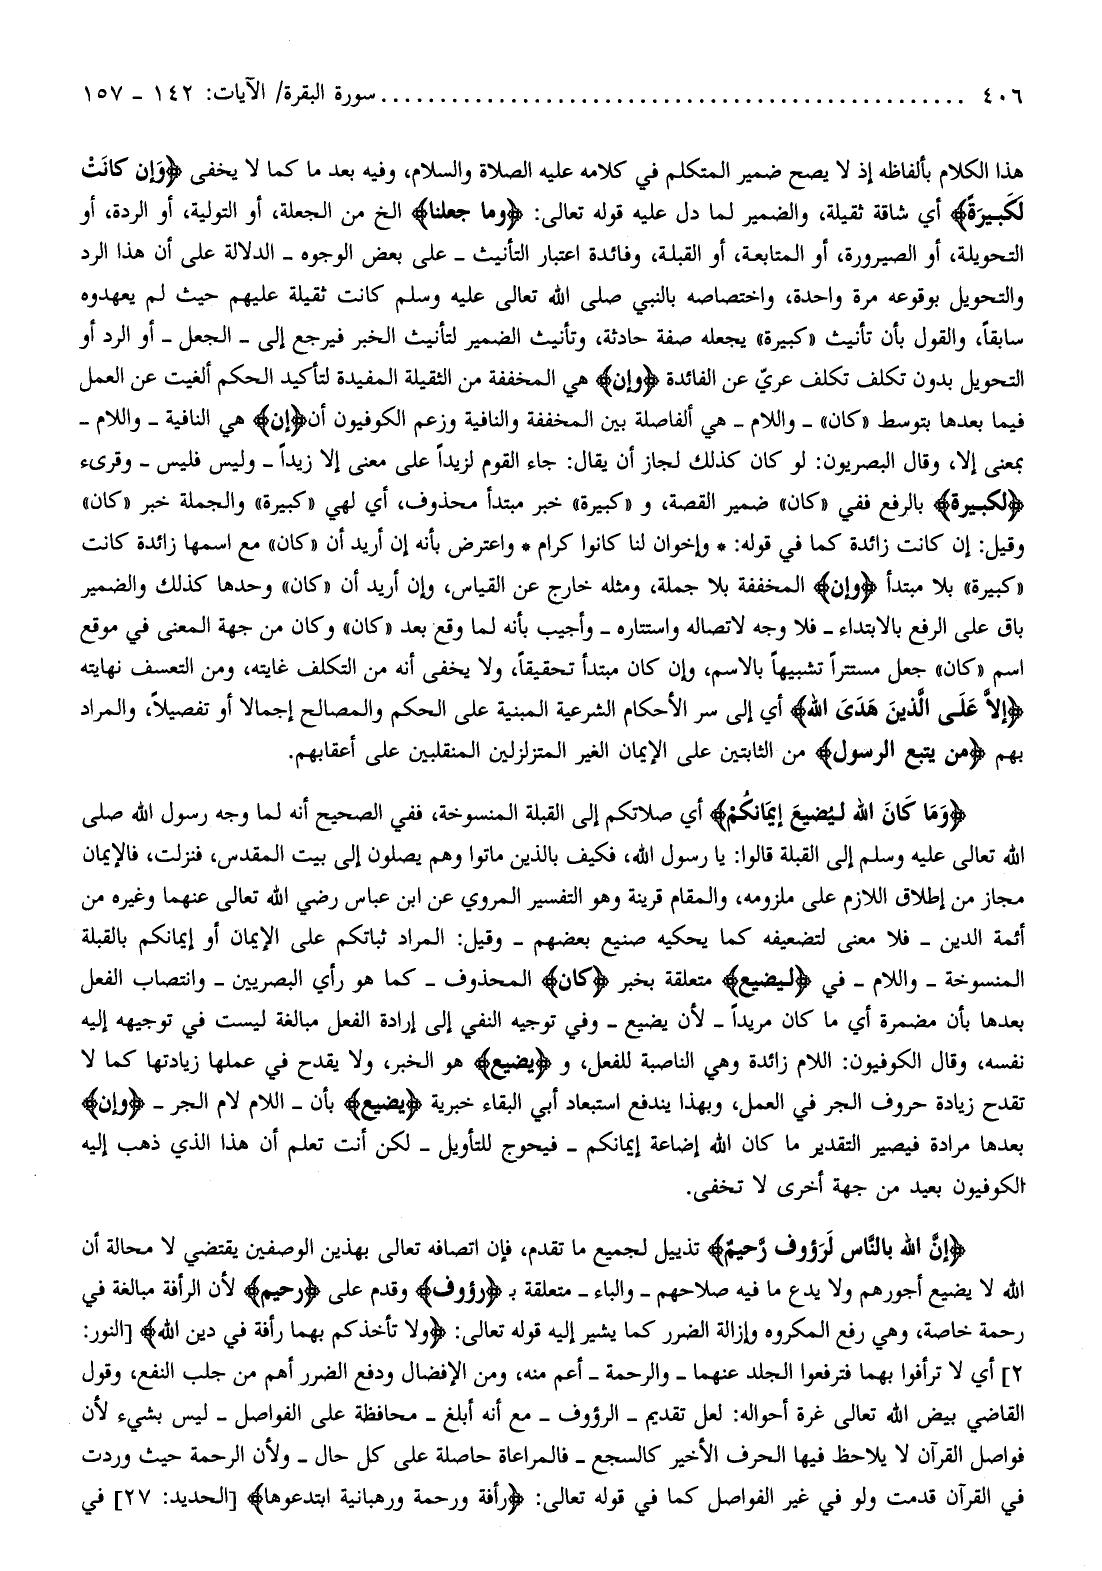 ٤٠٦ ................................................ سورة البقرة/ الآيات: ١٤٢ ـ ١٥٧
هذا الكلام بألفاظه إذ لا يصح ضمير المتكلم في كلامه عليه الصلاة والسلام، وفيه بعد ما كما لا يخفى ﴿وَإِن كَانَتْ
لَكَبِيرَةً﴾ أي شاقة ثقيلة، والضمير لما دل عليه قوله تعالى: ﴿وما جعلنا﴾ الخ من الجعلة، أو التولية، أو الردة، أو
التحويلة، أو الصيرورة، أو المتابعة، أو القبلة، وفائدة اعتبار التأنيث ـ على بعض الوجوه ـ الدلالة على أن هذا الرد
والتحويل بوقوعه مرة واحدة، واختصاصه بالنبي صلى الله تعالى عليه وسلم كانت ثقيلة عليهم حيث لم يعهدوه
سابقاً، والقول بأن تأنيث «كبيرة» يجعله صفة حادثة، وتأنيث الضمير لتأنيث الخبر فيرجع إلى ـ الجعل ـ أو الرد أو
التحويل بدون تكلف تكلف عريّ عن الفائدة ﴿وإن﴾ هي المخففة من الثقيلة المفيدة لتأكيد الحكم ألغيت عن العمل
فيما بعدها بتوسط «كان» ـ واللام ـ هي ألفاصلة بين المخففة والنافية وزعم الكوفيون أن﴿إن﴾ هي النافية ـ واللام ـ
بمعنى إلا، وقال البصريون: لو كان كذلك لجاز أن يقال: جاء القوم لزيداً على معنى إلا زيداً ـ وليس فليس ـ وقرىء
﴿لكبيرة﴾ بالرفع ففي «كان» ضمير القصة، و «كبيرة» خبر مبتدأ محذوف، أي لهي «كبيرة» والجملة خبر «كان»
وقيل: إن كانت زائدة كما في قوله: * وإخوان لنا كانوا كرام * واعترض بأنه إن أريد أن «كان» مع اسمها زائدة كانت
«كبيرة» بلا مبتدأ ﴿وإن﴾ المخففة بلا جملة، ومثله خارج عن القياس، وإن أريد أن «كان» وحدها كذلك والضمير
باق على الرفع بالابتداء ـ فلا وجه لاتصاله واستتاره ـ وأجيب بأنه لما وقع بعد «كان» وكان من جهة المعنى في موقع
اسم «كان» جعل مستتراً تشبيهاً بالاسم، وإن كان مبتدأ تحقيقاً، ولا يخفى أنه من التكلف غايته، ومن التعسف نهايته
﴿إِلاَّ عَلَى الَّذينَ هَدَىَ الله﴾ أي إلى سر الأحكام الشرعية المبنية على الحكم والمصالح إجمالا أو تفصيلاً، والمراد
بهم ﴿من يتبع الرسول﴾ من الثابتين على الإيمان الغير المتزلزلين المنقلبين على أعقابهم.
﴿وَمَا كَانَ الله ليُضيعَ إيمَانَكُمْ﴾ أي صلاتكم إلى القبلة المنسوخة، ففي الصحيح أنه لما وجه رسول الله صلى
الله تعالى عليه وسلم إلى القبلة قالوا: يا رسول الله، فكيف بالذين ماتوا وهم يصلون إلى بيت المقدس، فنزلت، فالإيمان
مجاز من إطلاق اللازم على ملزومه، والمقام قرينة وهو التفسير المروي عن ابن عباس رضي الله تعالى عنهما وغيره من
أئمة الدين ـ فلا معنى لتضعيفه كما يحكيه صنيع بعضهم ـ وقيل: المراد ثباتكم على الإيمان أو إيمانكم بالقبلة
المنسوخة ـ واللام ـ في ﴿ليضيع﴾ متعلقة بخبر ﴿كان﴾ المحذوف ـ كما هو رأي البصريين ـ وانتصاب الفعل
بعدها بأن مضمرة أي ما كان مريداً ـ لأن يضيع ـ وفي توجيه النفي إلى إرادة الفعل مبالغة ليست في توجيهه إليه
نفسه، وقال الكوفيون: اللام زائدة وهي الناصبة للفعل، و ﴿يضيع﴾ هو الخبر، ولا يقدح في عملها زيادتها كما لا
تقدح زيادة حروف الجر في العمل، وبهذا يندفع استبعاد أبي البقاء خبرية ﴿يضيع﴾ بأن ـ اللام لام الجر ـ ﴿وإن﴾
بعدها مرادة فيصير التقدير ما كان الله إضاعة إيمانكم ـ فيحوج للتأويل ـ لكن أنت تعلم أن هذا الذي ذهب إليه
الكوفيون بعيد من جهة أخرى لا تخفى.
﴿إنَّ الله بالنَّاس لَرَؤوف رَّحيمٌ﴾ تذييل لجميع ما تقدم، فإن اتصافه تعالى بهذين الوصفين يقتضي لا محالة أن
الله لا يضيع أجورهم ولا يدع ما فيه صلاحهم ـ والباء ـ متعلقة بـ ﴿رؤوف﴾ وقدم على ﴿رحيم﴾ لأن الرأفة مبالغة في
رحمة خاصة، وهي رفع المكروه وإزالة الضرر كما يشير إليه قوله تعالى: ﴿ولا تأخذكم بهما رأفة في دين الله﴾ [النور:
٢] أي لا ترأفوا بهما فترفعوا الجلد عنهما ـ والرحمة ـ أعم منه، ومن الإفضال ودفع الضرر أهم من جلب النفع، وقول
القاضي بيض الله تعالى غرة أحواله: لعل تقديم ـ الرؤوف ـ مع أنه أبلغ ـ محافظة على الفواصل ـ ليس بشيء لأن
فواصل القرآن لا يلاحظ فيها الحرف الأخير كالسجع ـ فالمراعاة حاصلة على كل حال ـ ولأن الرحمة حيث وردت
في القرآن قدمت ولو في غير الفواصل كما في قوله تعالى: ﴿رأفة ورحمة ورهبانية ابتدعوها﴾ [الحديد: ٢٧] في